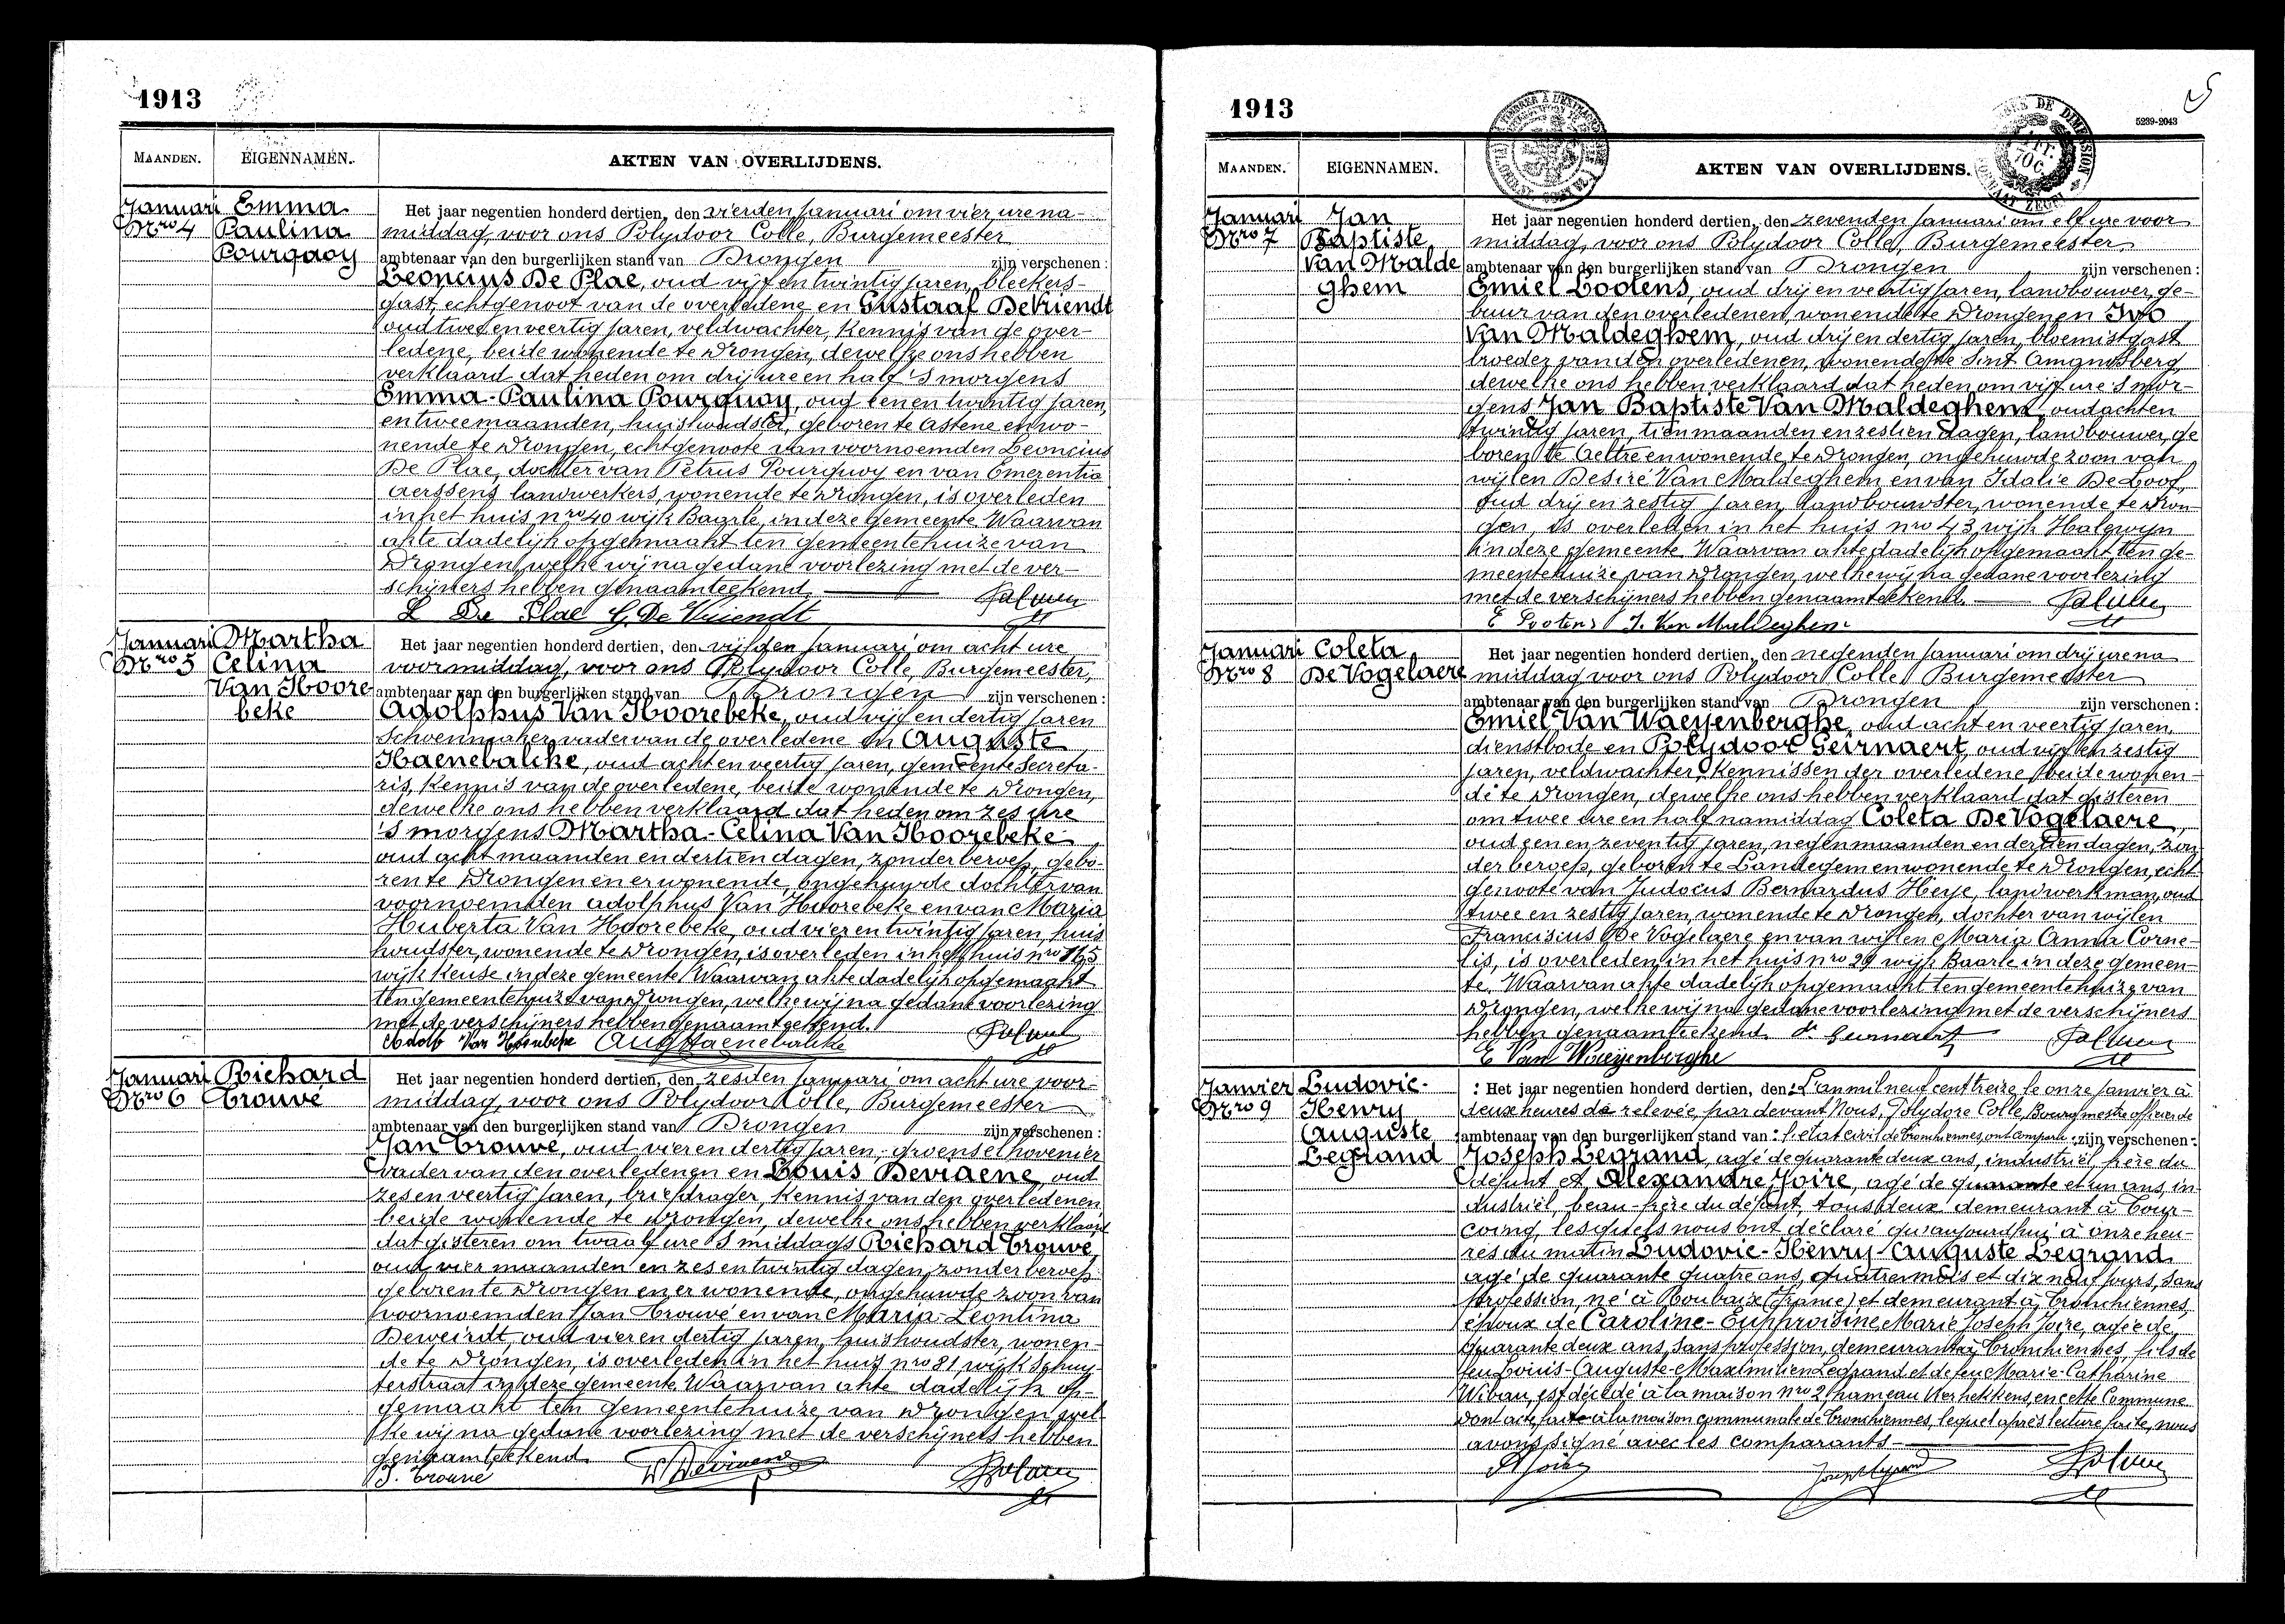 1913
MAANDEN. EIGENNAMEN. AKTEN VAN OVERLIJDENS.
Januari Nro 4
Emma Paulina Pourquoy
Het jaar negentien honderd dertien, den vierden Januari om vier ure na-
middag, voor ons Polydoor Colle, Burgemeester
ambtenaar van den burgerlijken stand van Drongen zijn verschenen:
Leoncius De Plae, oud vijf en twintig jaren, bleekers-
gast, echtgenoot van de overledene en Gustaaf De Vriendt
oud twee en veertig jaren, veldwachter, kennis van de over-
ledene, beide wonende te Drongen, dewelke ons hebben
verklaard dat heden om drij ure en half 's morgens
Emma-Paulina Pourquoy, oud een en twintig jaren,
en twee maanden, huishoudster, geboren te Astene en wo-
nende te Drongen, echtgenoote van voornoemden Leoncius
De Plae, dochter van Petrus Pourquoy en van Emerentia
Aerssens landwerkers, wonende te Drongen, is overleden
in het huis nro 40 wijk Baarle, in deze gemeente. Waarvan
akte dadelijk opgemaakt ten gemeentehuize van
Drongen, welke wij na gedane voorlezing met de ver-
schijners hebben genaamteekend.
L De Plae G. De Vriendt
Januari Nro 5
Martha Celina Van Hoore beke
Het jaar negentien honderd dertien, den vijfden Januari om acht ure
voormiddag, voor ons Polydoor Colle, Burgemeester,
ambtenaar van den burgerlijken stand van Drongen zijn verschenen:
Adolphus Van Hoorebeke, oud vijf en dertig jaren
schoenmaker, vader van de overledene en Auguste
Haenebalcke, oud acht en veertig jaren, gemeente secreta-
ris, kennis van de overledene, beide wonende te Drongen,
dewelke ons hebben verklaard dat heden om zes ure
's morgens Martha-Celina Van Hoorebeke
oud acht maanden en dertien dagen, zonder beroep, gebo-
ren te Drongen en er wonende, ongehuwde dochter van
voornoemden Adolphus Van Hoorebeke en van Maria
Huberta Van Hoorebeke, oud vier en twintig jaren, huis
houdster, wonende te Drongen, is overleden in het huis nro 165
wijk Keuse in deze gemeente. Waarvan akte dadelijk opgemaakt
ten gemeentehuize van Drongen, welke wij na gedane voorlezing
met de verschijners hebben genaamteekend.
Adolf Van Hoorebeke Aug Haenebalcke
Januari Nro 6
Richard Trouvé
Het jaar negentien honderd dertien, den zesden Januari om acht ure voor-
middag, voor ons Polydoor Colle, Burgemeester
ambtenaar van den burgerlijken stand van Drongen zijn verschenen:
Jan Trouvé, oud vier en dertig jaren, groenselhovenier
vader van den overledenen en Louis Devraene, oud
zes en veertig jaren, briefdrager, kennis van den overledenen
beide wonende te Drongen, dewelke ons hebben verklaard
dat gisteren om twaalf ure 's middags Richard Trouvé
oud vier maanden en zes en twintig dagen, zonder beroep
geboren te Drongen en er wonende, ongehuwde zoon van
voornoemden Jan Trouvé en van Maria-Leontina
Deweirdt, oud vier en dertig jaren, huishoudster, wonen-
de te Drongen, is overleden in het huis nro 81 wijk Schuy-
terstraat in deze gemeente. Waarvan akte dadelijk op-
gemaakt ten gemeentehuize van Drongen, wel-
ke wij na gedane voorlezing met de verschijners hebben
genaamteekend
J. Trouvé
1913
5239-2043
MAANDEN. EIGENNAMEN. AKTEN VAN OVERLIJDENS.
Januari Nro 7
Jan Baptiste Van Malde ghem
Het jaar negentien honderd dertien, den zevenden Januari om elf ure voor
middag, voor ons Polydoor Colle, Burgemeester
ambtenaar van den burgerlijken stand van Drongen zijn verschenen:
Emiel Lootens, oud drij en veertig jaren, landbouwer, ge-
buur van den overledenen, wonende te Drongen en Ivo
Van Maldeghem, oud drij en dertig jaren, bloemistgast
broeder van den overledenen, wonende te Sint Amandsberg
dewelke ons hebben verklaard dat heden om vijf ure 's mor-
gens Jan Baptiste Van Maldeghem, oud acht en
twintig jaren, tien maanden en zestien dagen, landbouwer, ge
boren te Aeltre en wonende te Drongen, ongehuwde zoon van
wijlen Desiré Van Maldeghem en van Idalie De Loof,
oud drij en zestig jaren, landbouwster, wonende te Dron-
gen, is overleden in het huis nro 43 wijk Halewijn
in deze gemeente. Waarvan akte dadelijk opgemaakt ten ge-
meentehuize van Drongen, welke wij na gedane voorlezing
met de verschijners hebben genaamteekend.
E Lootens I. Van Maldeghem
Januari Nro 8
Coleta De Vogelaere
Het jaar negentien honderd dertien, den negenden Januari om drij ure na
middag voor ons Polydoor Colle, Burgemeester
ambtenaar van den burgerlijken stand van Drongen zijn verschenen:
Emiel Van Waeyenberghe, oud acht en veertig jaren,
dienstbode en Polydoor Geirnaert, oud vijf en zestig
jaren, veldwachter, kennissen der overledene, beide wonen-
de te Drongen, dewelke ons hebben verklaard dat gisteren
om twee ure en half namiddag Coleta De Vogelaere,
oud een en zeventig jaren, negen maanden en dertien dagen, zon
der beroep, geboren te Landegem en wonende te Drongen, echt
genoote van Judocus Bernardus Heye, landwerkman, oud
twee en zestig jaren, wonende te Drongen, dochter van wijlen
Francisius De Vogelaere en van wijlen Maria Anna Corne-
lis, is overleden in het huis nro 29 wijk Baarle in deze gemeen-
te. Waarvan akte dadelijk opgemaakt ten gemeentehuize van
Drongen, welke wij na gedane voorlezing met de verschijners
hebben genaamteekend
E Van Waeyenberghe
Janvier Nro 9
Ludovic-Henry Auguste Legrand
Het jaar negentien honderd dertien, den: L'an mil neuf cent treize, le onze janvier à
deux heures de relevée, par devant Nous, Polydore Colle, Bourgmestre officier de
ambtenaar van den burgerlijken stand van: l'etat civil de Tronchiennes, ont comparu: zijn verschenen:
Joseph Legrand, agé de quarante deux ans, industriel, frère du
défunt et Alexandre Joire, agé de quarante et un ans, in-
dustriel, beau-frère du défunt, tous deux demeurant à Tour-
coing, lesquels nous ont déclaré qu'aujourdhui à onze heu-
res du matin Ludovic-Henry-Auguste Legrand
agé de quarante quatre ans, quatre mois et dix neuf jours, sans
profession, né à Roubaix (France) et demeurant à Tronchiennes,
époux de Caroline-Euphroisine Marie Joseph Joire, agée de
quarante deux ans, sans profession, demeurant à Tronchiennes, fils de
feu Louis-Auguste-Maximilien Legrand et de feu Marie-Catharine
Wibau, est décédé à la maison nro 2, hameau Kerhekkens, en cette Commune
Dont acte, faite à la maison communale de Tronchiennes, lequel après lecture faite, nous
avons signé avec les comparants
A Joire Joseph Legrand